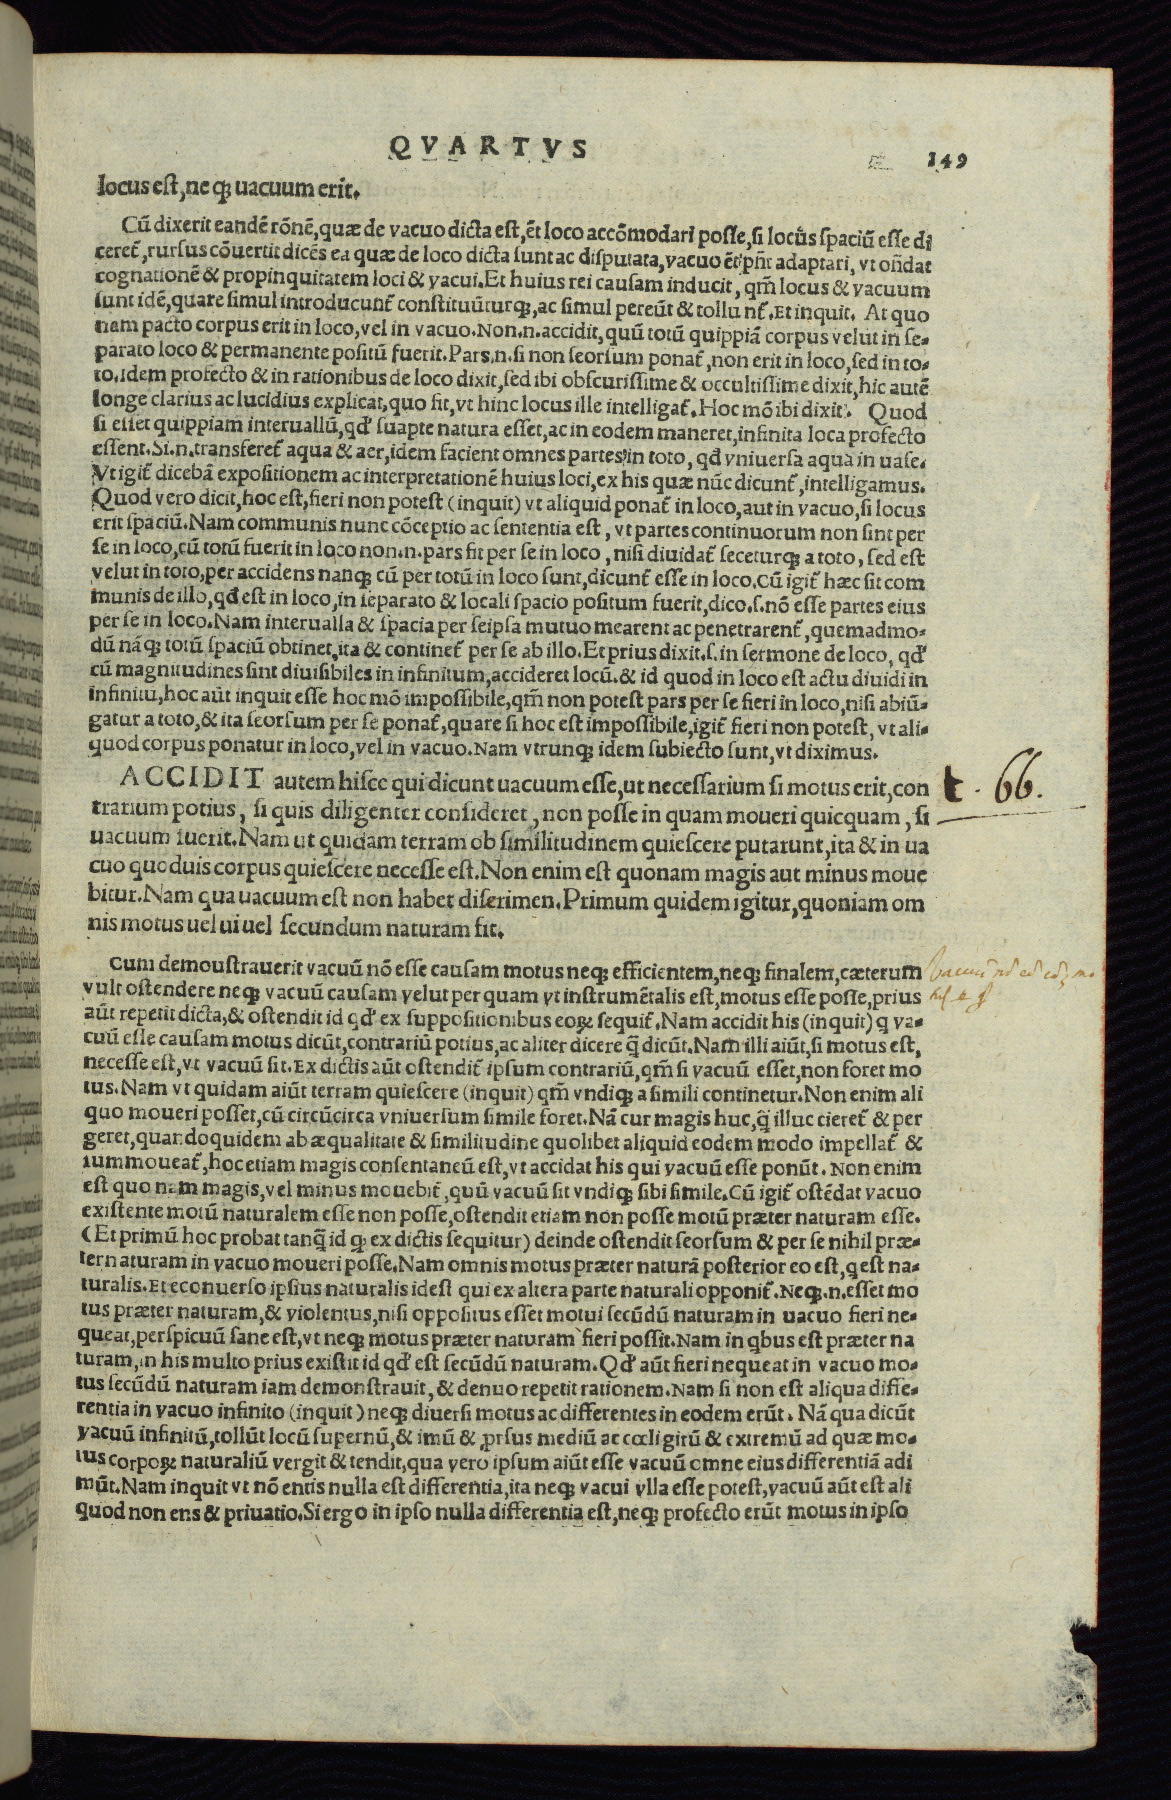 QVARTVS
149
locus est, neq; uacuum erit.
Cũ dixerit eandẽ rõnẽ, quæ de vacuo dicta est, ẽt loco accõmodari posse, si locus spaciũ esse di
ceret̃, rursus cõuertit dicẽs ea quæ de loco dicta sunt ac disputata, vacuo ẽt pñt adaptari, vt oñdat
cognationẽ & propinquitatem loci & vacui. Et huius rei causam inducit, qm̃ locus & vacuum
sunt idẽ, quare simul introducunt̃ constituũturq;, ac simul pereũt & tollunt̃. Et inquit. At quo
nam pacto corpus erit in loco, vel in vacuo. Non.n. accidit, quũ totũ quippiã corpus velut in se-
parato loco & permanente positũ fuerit. Pars.n. si non seorsum ponat̃, non erit in loco, sed in to-
to. idem profecto & in rationibus de loco dixit, sed ibi obscurissime & occultissime dixit, hic autẽ
longe clarius ac lucidius explicat, quo fit, vt hinc locus ille intelligat̃. Hoc mõ ibi dixit. Quod
si esset quippiam interuallũ, qd̃ suapte natura esset, ac in eodem maneret, infinita loca profecto
essent. Si.n. transferet̃ aqua & aer, idem facient omnes partes in toto, qd̃ vniuersa aqua in uase.
Vt igit̃ dicebã expositionem ac interpretationẽ huius loci, ex his quæ nũc dicunt̃, intelligamus.
Quod vero dicit, hoc est, fieri non potest (inquit) vt aliquid ponat̃ in loco, aut in vacuo, si locus
erit spaciũ. Nam communis nunc cõceptio ac sententia est, vt partes continuorum non sint per
se in loco, cũ totũ fuerit in loco non.n. pars fit per se in loco, nisi diuidat̃ seceturq; a toto, sed est
velut in toto, per accidens nanq; cũ per totũ in loco sunt, dicunt̃ esse in loco. Cũ igit̃ hæc sit com
munis de illo, qd̃ est in loco, in separato & locali spacio positum fuerit, dico.s. nõ esse partes eius
per se in loco. Nam interualla & spacia per seipsa mutuo mearent ac penetrarent̃, quemadmo-
dũ nãq; totũ spaciũ obtinet, ita & continet̃ per se ab illo. Et prius dixit.s. in sermone de loco, qd̃
cũ magnitudines sint diuisibiles in infinitum, accideret locũ. & id quod in loco est actu diuidi in
infinitũ, hoc aũt inquit esse hoc mõ impossibile, qm̃ non potest pars per se fieri in loco, nisi abiũ-
gatur a toto, & ita seorsum per se ponat̃, quare si hoc est impossibile, igit̃ fieri non potest, vt ali-
quod corpus ponatur in loco, vel in vacuo. Nam vtrunq; idem subiecto sunt, vt diximus.
ACCIDIT autem hisce qui dicunt uacuum esse, ut necessarium si motus erit, con
trarium potius, si quis diligenter consideret, non posse in quam moueri quicquam, si
uacuum fuerit. Nam ut quidam terram ob similitudinem quiescere putarunt, ita & in ua
cuo quoduis corpus quiescere necesse est. Non enim est quonam magis aut minus moue
bitur. Nam qua uacuum est non habet discrimen. Primum quidem igitur, quoniam om
nis motus uel ui uel secundum naturam fit.
t. 66.
Cum demoustrauerit vacuũ nõ esse causam motus neq; efficientem, neq; finalem, cæterum
vult ostendere neq; vacuũ causam velut per quam vt instrumẽtalis est, motus esse posse, prius
aũt repetit dicta, & ostendit id qd̃ ex suppositionibus eoꝝ sequit̃. Nam accidit his (inquit) q va-
cuũ esse causam motus dicũt, contrariũ potius, ac aliter dicere q̃ dicũt. Nam illi aiũt, si motus est,
necesse est, vt vacuũ sit. Ex dictis aũt ostendit̃ ipsum contrariũ, qm̃ si vacuũ esset, non foret mo
tus. Nam vt quidam aiũt terram quiescere (inquit) qm̃ vndiq; a simili continetur. Non enim ali
quo moueri posset, cũ circũcirca vniuersum simile foret. Nã cur magis huc, q̃ illuc cieret̃ & per
geret, quandoquidem ab æqualitate & similitudine quolibet aliquid eodem modo impellat̃ &
summoueat̃, hoc etiam magis consentaneũ est, vt accidat his qui vacuũ esse ponũt. Non enim
est quo nam magis, vel minus mouebit̃, quũ vacuũ sit vndiq; sibi simile. Cũ igit̃ ostẽdat vacuo
existente motũ naturalem esse non posse, ostendit etiam non posse motũ præter naturam esse.
(Et primũ hoc probat tanq̃ id q; ex dictis sequitur) deinde ostendit seorsum & per se nihil præ-
ter naturam in vacuo moueri posse. Nam omnis motus præter naturã posterior eo est, q est na-
turalis. Et econuerso ipsius naturalis idest qui ex altera parte naturali opponit̃. Neq;.n. esset mo
tus præter naturam, & violentus, nisi oppositus esset motui secũdũ naturam in uacuo fieri ne-
queat, perspicuũ sane est, vt neq; motus præter naturam fieri possit. Nam in qbus est præter na
turam, in his multo prius existit id qd̃ est secũdũ naturam. Qd̃ aũt fieri nequeat in vacuo mo-
tus secũdũ naturam iam demonstrauit, & denuo repetit rationem. Nam si non est aliqua diffe-
rentia in vacuo infinito (inquit) neq; diuersi motus ac differentes in eodem erũt. Nã qua dicũt
vacuũ infinitũ, tollũt locũ supernũ, & imũ & ꝓrsus mediũ ac cœli girũ & extremũ ad quæ mo-
tus corpoꝝ naturaliũ vergit & tendit, qua vero ipsum aiũt esse vacuũ omne eius differentiã adi
mũt. Nam inquit vt nõ entis nulla est differentia, ita neq; vacui ylla esse potest, vacuũ aũt est ali
quod non ens & priuatio. Si ergo in ipso nulla differentia est, neq; profecto erũt motus in ipso